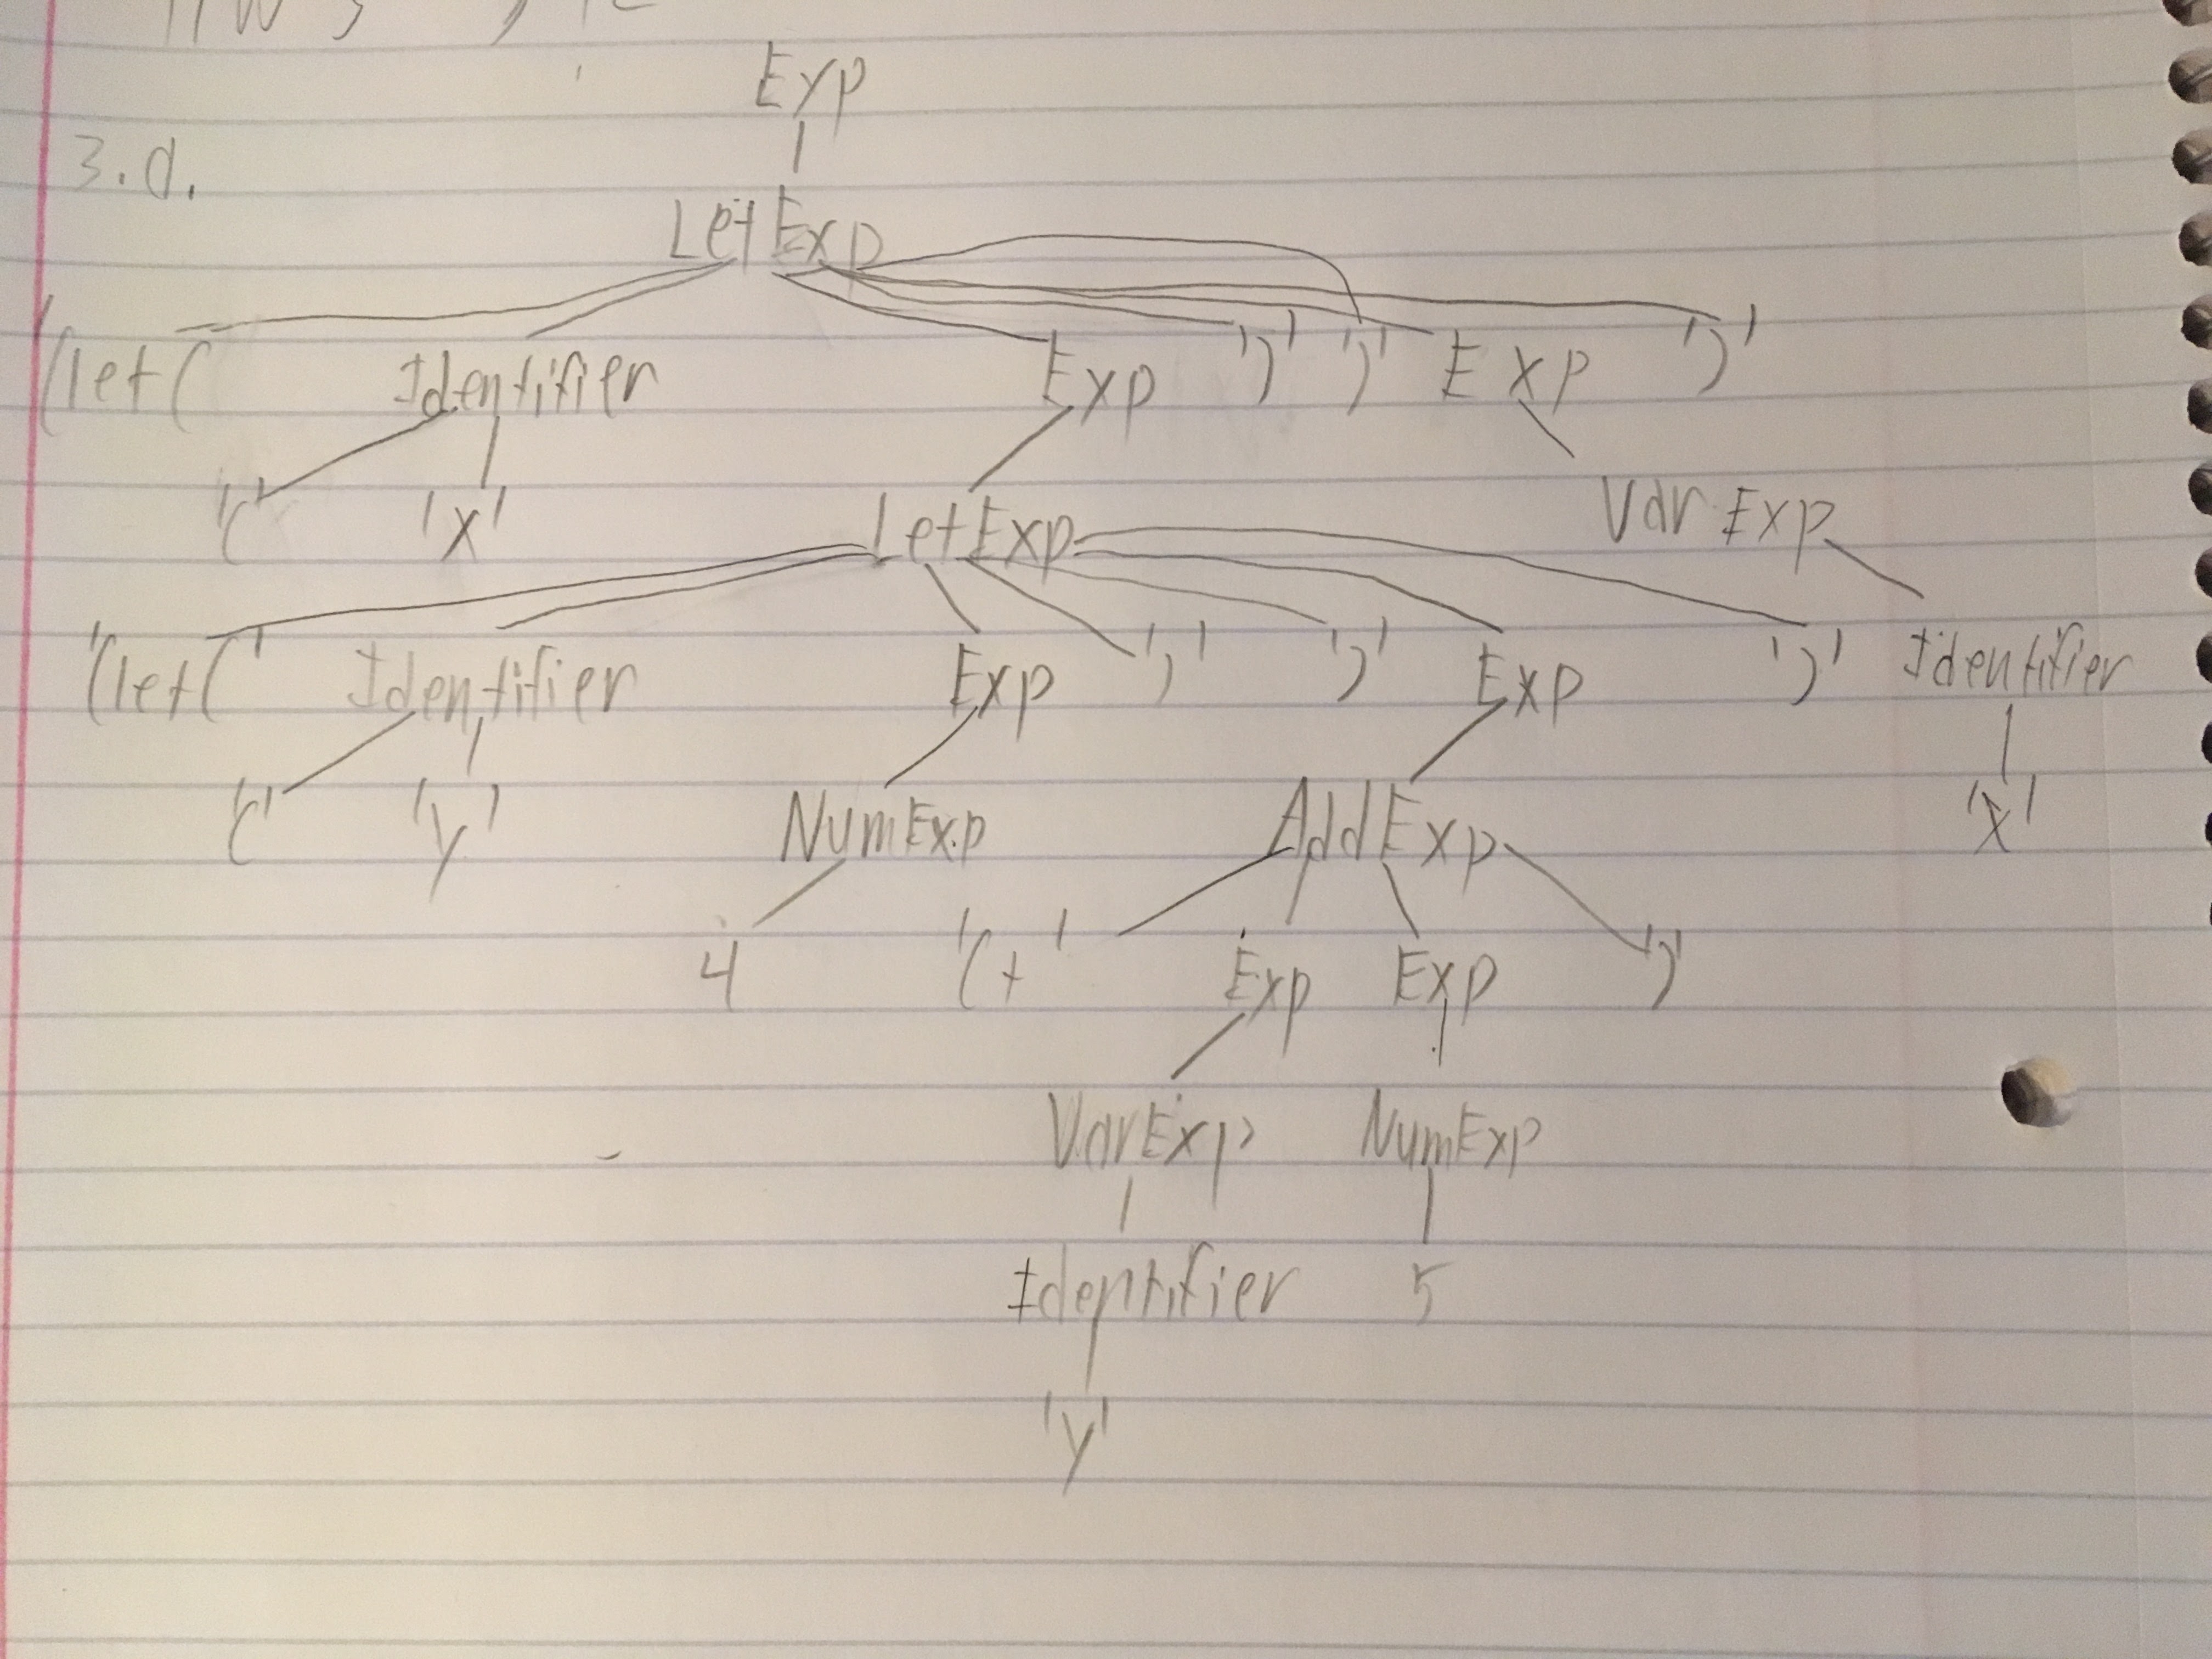 Exp
3.d.
LetExp
(let( Identifier Exp ')' ')' Exp ')'
'(' 'x' LetExp VarExp
'(let(' Identifier Exp ')' ')' Exp ')' Identifier
'(' 'y' NumExp AddExp 'x'
4 '(+' Exp Exp ')'
VarExp NumExp
Identifier 5
'y'